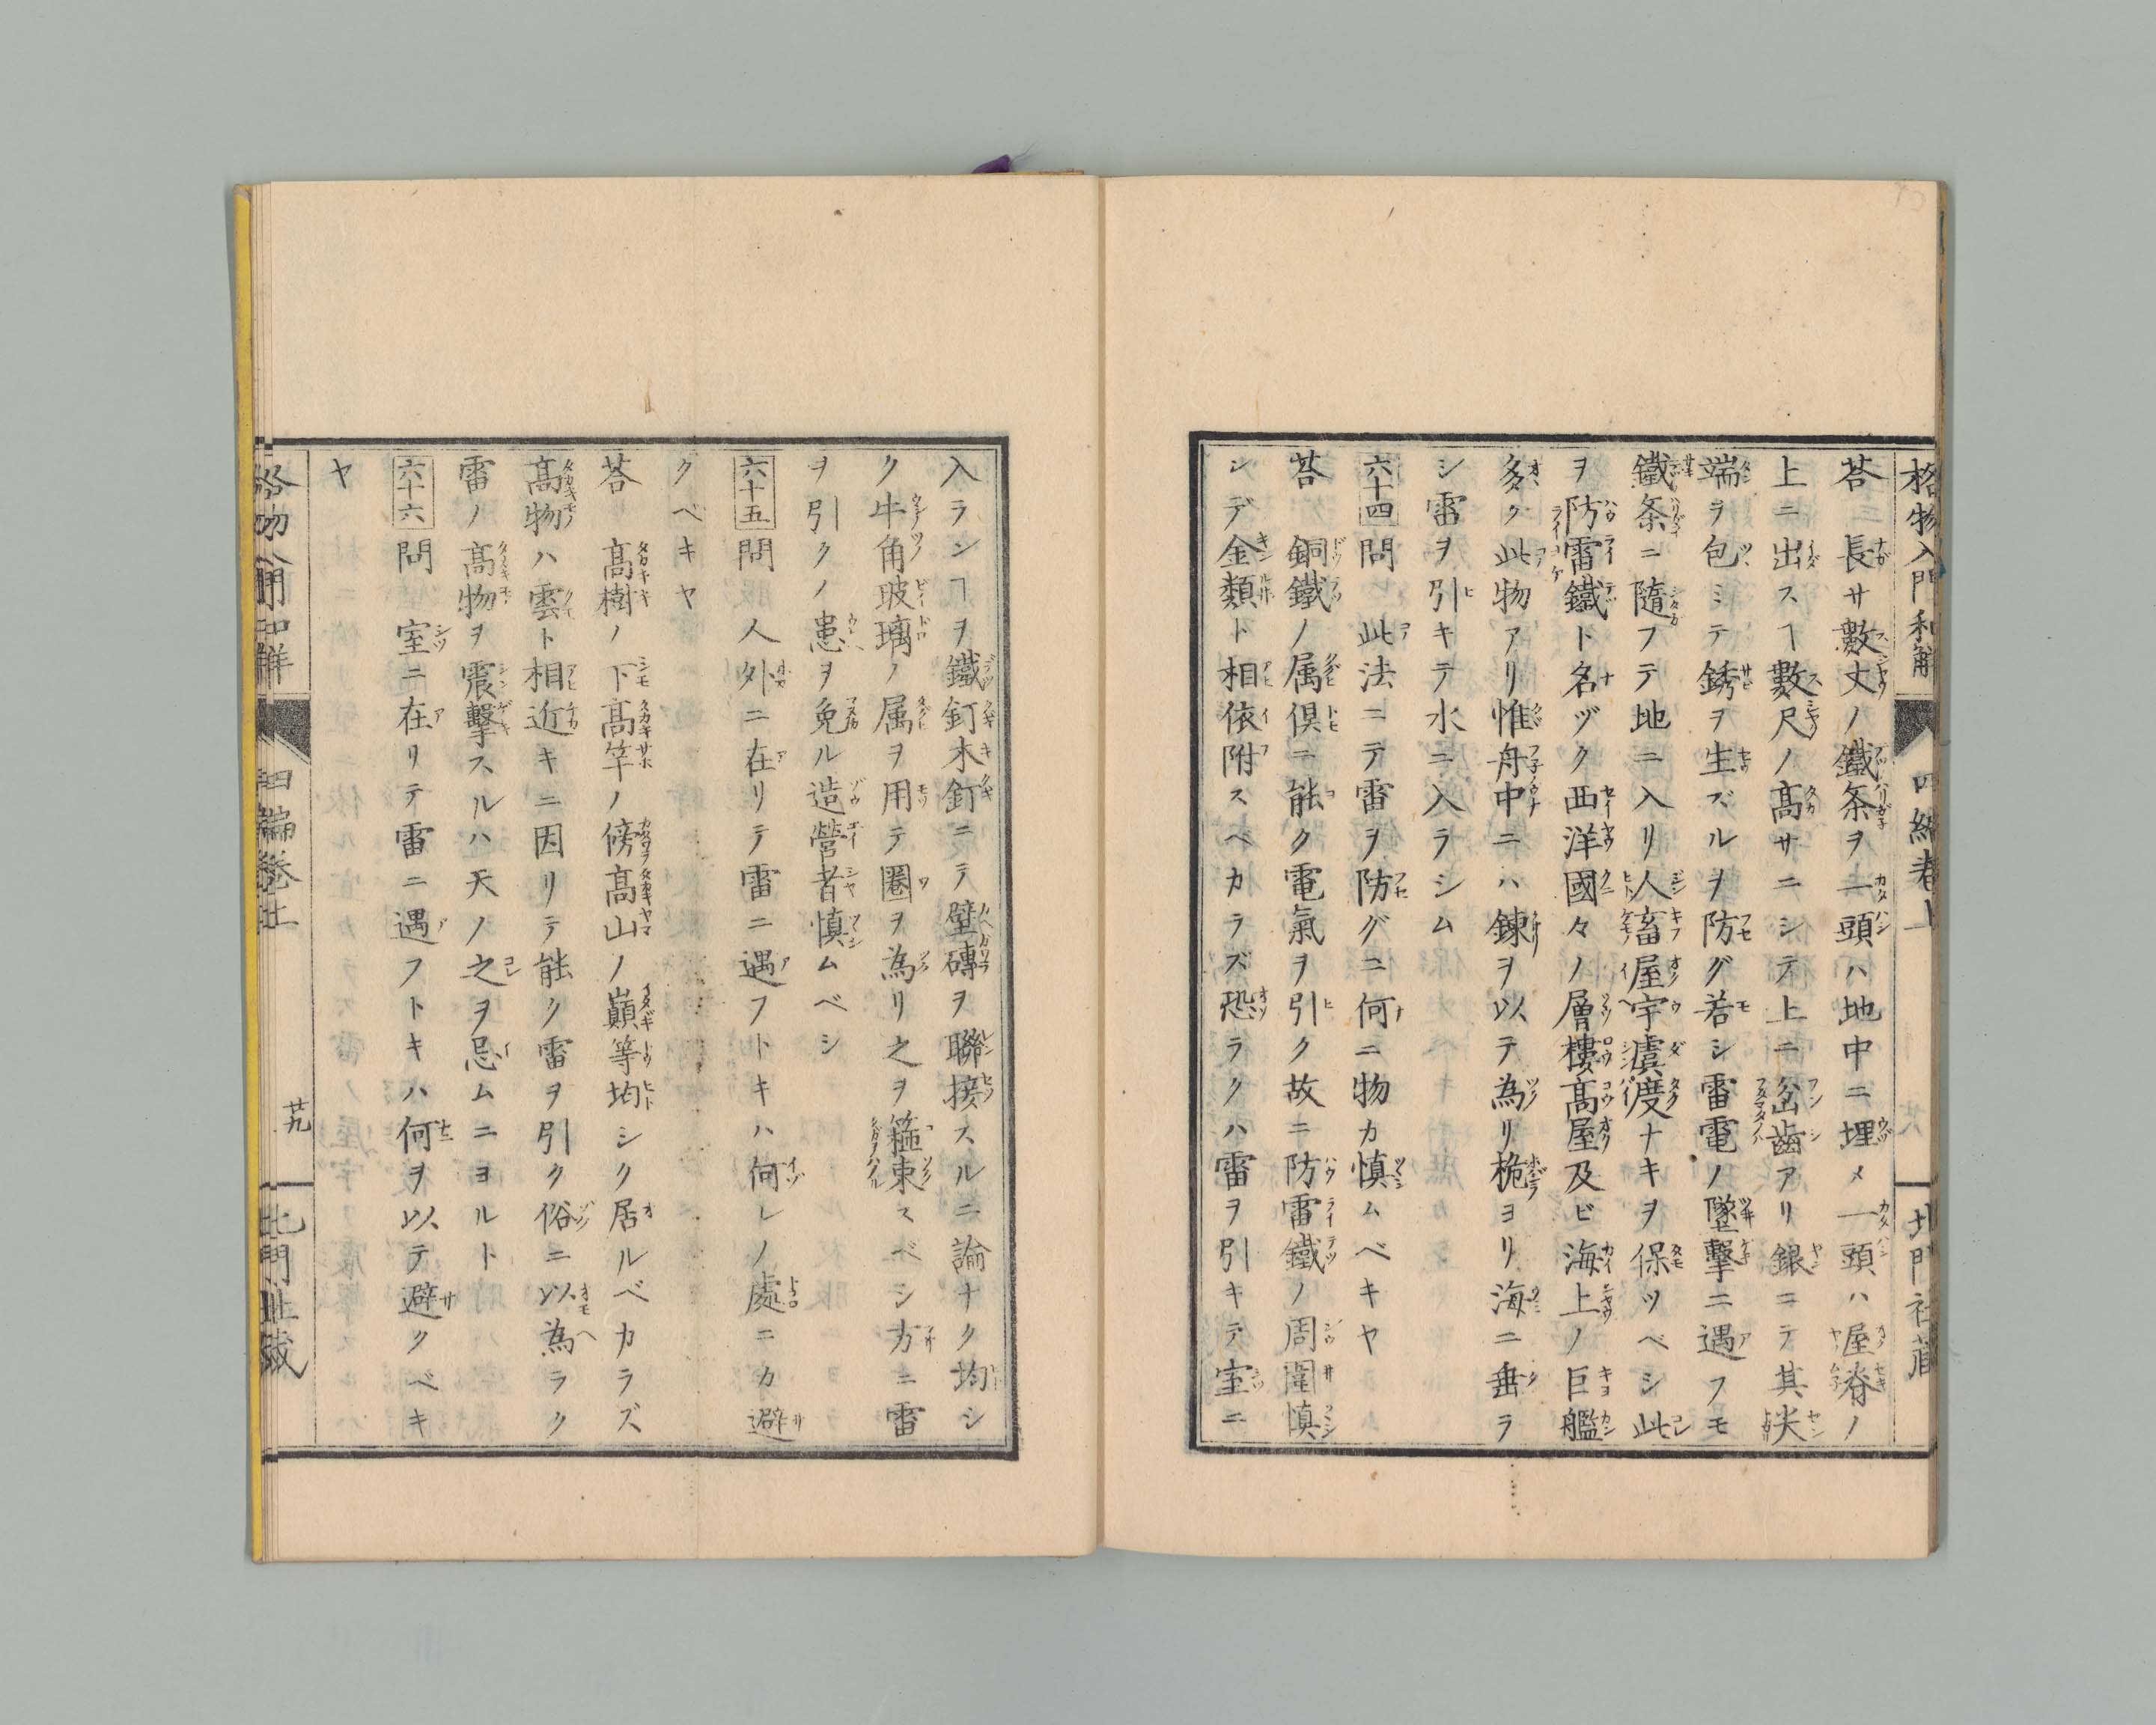 格物入門和解 四編卷上 北門社藏
荅 長サ數丈ノ鐵条ヲ一頭ハ地中ニ埋メ一頭ハ屋脊ノ
上ニ出スヿ數尺ノ高サニシテ上ニ岔齒アリ銀ニテ其尖
端ヲ包ミテ銹ヲ生ズルヲ防グ若シ雷電ノ墜擊ニ遇フモ
鐵条ニ隨フテ地ニ入リ人畜屋宇虞度ナキヲ保ツベシ此
ヲ防雷鐵ト名ヅク西洋國々ノ層樓高屋及ビ海上ノ巨艦
多ク此物アリ惟舟中ニハ鍊ヲ以テ為リ桅ヨリ海ニ垂ラ
シ雷ヲ引キテ水ニ入ラシム
六十四 問 此法ニテ雷ヲ防グニ何ニ物カ慎ムベキヤ
荅 銅鐵ノ属倶ニ能ク電氣ヲ引ク故ニ防雷鐵ノ周圍慎
ンデ金類ト相依附スベカラズ恐ラクハ雷ヲ引キテ室ニ
入ランヿヲ鐵釘木釘ニテ壁磚ヲ聯接スルニ論ナク均シ
ク牛角玻璃ノ属ヲ用テ圈ヲ為リ之ヲ箍束スベシ方ニ雷
ヲ引クノ患ヲ免ル造營者慎ムベシ
六十五 問 人外ニ在リテ雷ニ遇フトキハ何レノ處ニカ避
クベキヤ
荅 高樹ノ下高竿ノ傍高山ノ巓等均シク居ルベカラズ
高物ハ雲ト相近キニ因リテ能ク雷ヲ引ク俗ニ以為ラク
雷ノ高物ヲ震擊スルハ天ノ之ヲ忌ムニヨルト
六十六 問 室ニ在リテ雷ニ遇フトキハ何ヲ以テ避クベキ
ヤ
格物入門和解 四編卷上 廿九 北門社藏